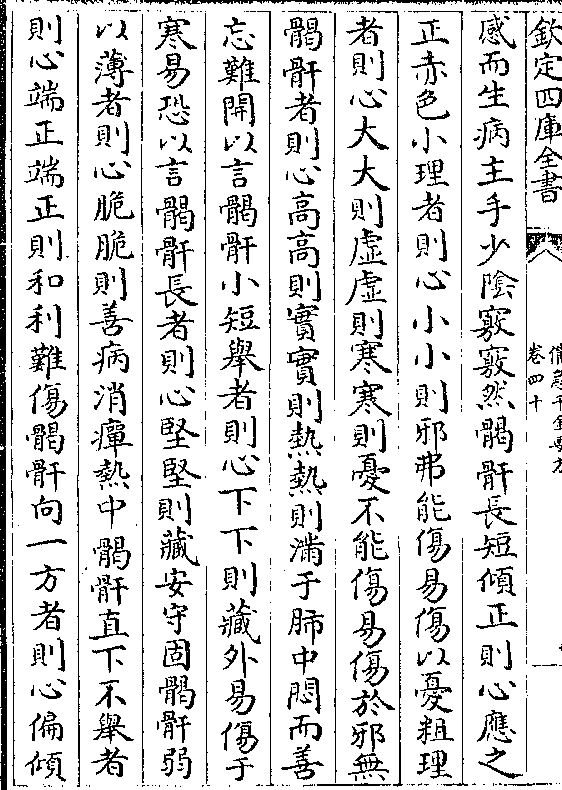 欽定四庫全書
備急千金要方
卷四十
感而生病主手少陰竅竅然𩩲骬長短傾正則心應之
正赤色小理者則心小小則邪弗能傷易傷以憂粗理
者則心大大則虛虛則寒寒則憂不能傷易傷於邪無
𩩲骬者則心高高則實實則熱熱則滿于肺中悶而善
忘難開以言𩩲骬小短舉者則心下下則藏外易傷于
寒易恐以言𩩲骬長者則心堅堅則藏安守固𩩲骬弱
以薄者則心脆脆則善病消癉熱中𩩲骬直下不舉者
則心端正端正則和利難傷𩩲骬向一方者則心偏傾